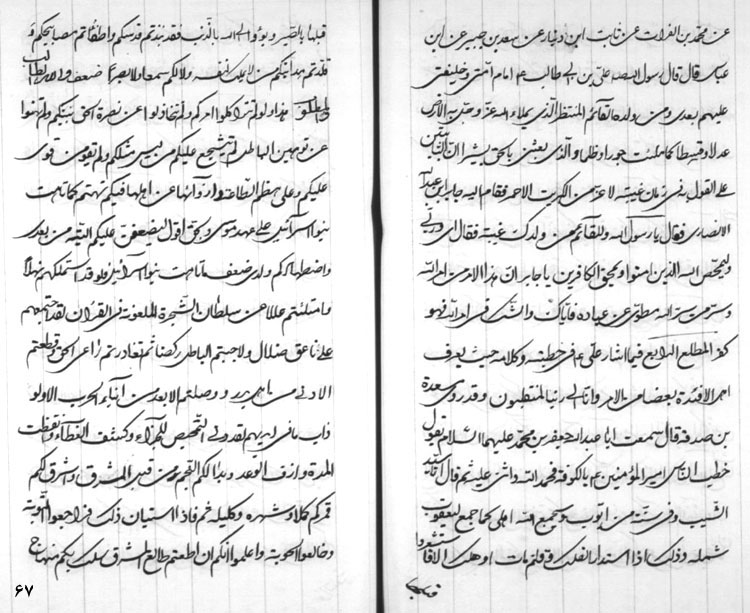 عن محمد بن الفرات عن ثابت ابن دينار عن سعيد بن جبير عن ابن
عباس قال قال رسول الله صلى علي بن ابي طالب ع امام امتي وخليفتي
عليهم بعدي ومن ولده القائم المنتظر الذي يملاء الله عز وجل به الارض
عدلا وقسطا كما ملئت جورا وظلما والذي بعثني بالحق بشيرا ان الثابتين
على القول به في زمان غيبته لاعز من الكبريت الاحمر فقام اليه جابر ابن عبد الله
الانصاري فقال يا رسول الله وللقائم من ولدك غيبة فقال اي وربي
وليمحص الله الذين امنوا ويمحق الكافرين يا جابر ان هذا الامر من امر الله
وسر من سر الله مطوي عن عباده فاياك والشك في امر الله فهو
كفر المطلع الرابع فيما اشار علي ع في خطبته وكلامه حيث يعرف
اهل الافئدة بعضا من الامر وانا لى ربنا لمنقلبون وقد روى مسعدة
بن صدقة قال سمعت ابا عبد الله جعفر بن محمد عليهما السلام يقول
خطب الناس امير المؤمنين ع بالكوفة فحمد الله واثنى عليه ثم قال انا سيد
الشيب وفي سنة من ايوب وسيجمع الله اهلي كما جمع ليعقوب
شمله وذلك اذا استدار الفلك وقلتم مات او هلك الا فاستشعروا
قبلها بالصبر وبوؤا الى الله بالذنب فقد نبذتم قدسكم واطفاتم مصابيحكم و
قلدتم هدايتكم من لا يملك لنفسه ولا لكم سمعا ولا بصرا ضعف والله الطالب
والمطلوب هذا ولو لم تتواكلوا امركم ولم تتخاذلوا عن نصرة الحق بينكم ولم تهنوا
عن توهين الباطل لم يتشجع عليكم من ليس مثلكم ولم يقو من قوى
عليكم وعلى هضم الطاعة وازوائها عن اهلها فيكم تهتم كما تاهت
بنوا اسرآئيل على عهد موسى وبحق اقول ليضعفن عليكم التيه من بعدي
واضطهادكم ولدي ضعف ما تاهت بنوا اسرآئيل فلو قد استكملتم نهلا
وامتلئتم عللا عن سلطان الشجرة الملعونة في القران لقد اجتمعتم
على ناعق ضلال ولاجبتم الباطل ركضا ثم لغادرتم داعي الحق وقطعتم
الادنى من اهل بدر ووصلتم الابعد من ابناء الحرب الا ولو
ذاب ما في ايديهم لقد دنى التمحيص للجزاء وكشف الغطاء وانقضت
المدة وازف الوعد وبدا لكم النجم من قبل المشرق واشرق لكم
قمركم كملا وشهره وكليله ثم فاذا استبان ذلك فراجعوا التوبة
وخالعوا الحوبة واعلموا انكم ان اطعتم طالع المشرق سلك بكم منهاج
۶۷